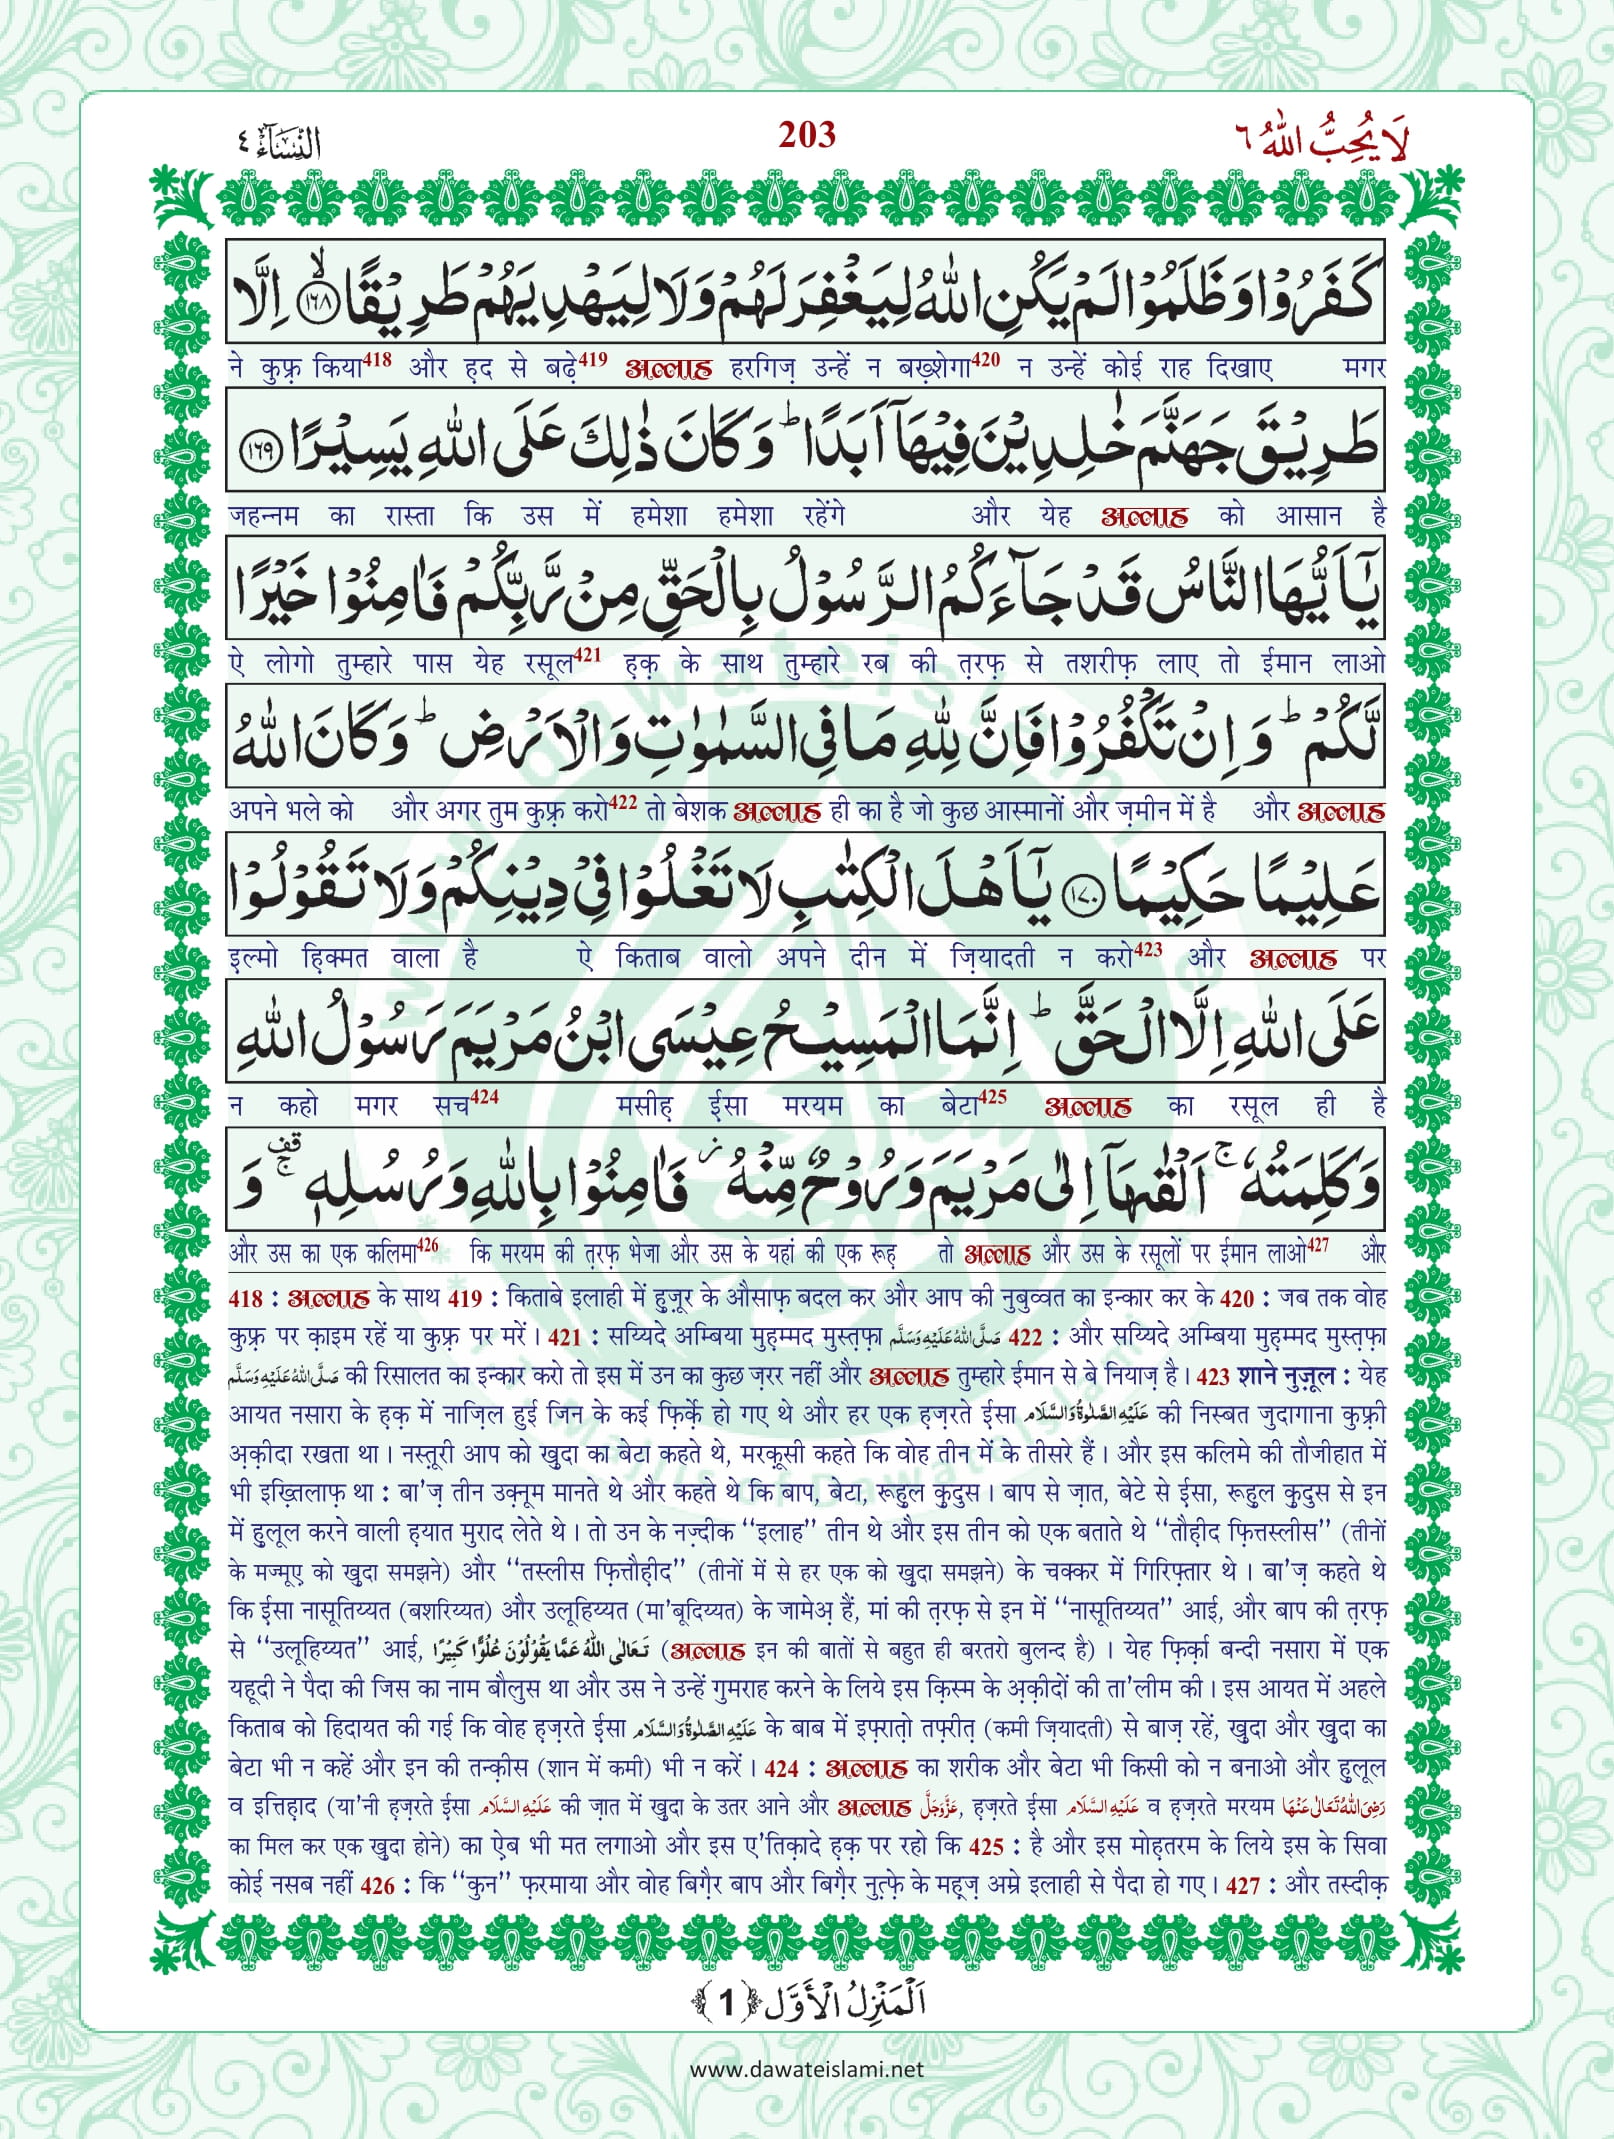 النِّسَآء ٤
203
لَا يُحِبُّ اللّٰهُ ٦
كَفَرُوْا وَظَلَمُوْا لَمْ يَكُنِ اللّٰهُ لِيَغْفِرَ لَهُمْ وَلَا لِيَهْدِيَهُمْ طَرِيْقًا ۙ﴿١٦٨﴾ اِلَّا
ने कुफ़्र किया418 और ह़द से बढ़े419 अल्लाह हरगिज़ उन्हें न बख़्शेगा420 न उन्हें कोई राह दिखाए मगर
طَرِيْقَ جَهَنَّمَ خٰلِدِيْنَ فِيْهَاۤ اَبَدًا ؕ وَكَانَ ذٰلِكَ عَلَى اللّٰهِ يَسِيْرًا ﴿١٦٩﴾
जहन्नम का रास्ता कि उस में हमेशा हमेशा रहेंगे और येह अल्लाह को आसान है
يٰۤاَيُّهَا النَّاسُ قَدْ جَآءَكُمُ الرَّسُوْلُ بِالْحَقِّ مِنْ رَّبِّكُمْ فَاٰمِنُوْا خَيْرًا
ऐ लोगो तुम्हारे पास येह रसूल421 ह़क़ के साथ तुम्हारे रब की त़रफ़ से तशरीफ़ लाए तो ईमान लाओ
لَّكُمْ ؕ وَاِنْ تَكْفُرُوْا فَاِنَّ لِلّٰهِ مَا فِى السَّمٰوٰتِ وَالْاَرْضِ ؕ وَكَانَ اللّٰهُ
अपने भले को और अगर तुम कुफ़्र करो422 तो बेशक अल्लाह ही का है जो कुछ आस्मानों और ज़मीन में है और अल्लाह
عَلِيْمًا حَكِيْمًا ﴿١٧٠﴾ يٰۤاَهْلَ الْكِتٰبِ لَا تَغْلُوْا فِىْ دِيْنِكُمْ وَلَا تَقُوْلُوْا
इल्मो ह़िक्मत वाला है ऐ किताब वालो अपने दीन में ज़ियादती न करो423 और अल्लाह पर
عَلَى اللّٰهِ اِلَّا الْحَقَّ ؕ اِنَّمَا الْمَسِيْحُ عِيْسَى ابْنُ مَرْيَمَ رَسُوْلُ اللّٰهِ
न कहो मगर सच424 मसीह़ ईसा मरयम का बेटा425 अल्लाह का रसूल ही है
وَكَلِمَتُهٗ ۚ اَلْقٰىهَاۤ اِلٰى مَرْيَمَ وَرُوْحٌ مِّنْهُ ۫ فَاٰمِنُوْا بِاللّٰهِ وَرُسُلِهٖ ۚ قف وَ
और उस का एक कलिमा426 कि मरयम की त़रफ़ भेजा और उस के यहां की एक रूह़ तो अल्लाह और उस के रसूलों पर ईमान लाओ427 और
418 : अल्लाह के साथ 419 : किताबे इलाही में हुज़ूर के औसाफ़ बदल कर और आप की नुबुव्वत का इन्कार कर के 420 : जब तक वोह
कुफ़्र पर क़ाइम रहें या कुफ़्र पर मरें । 421 : सय्यिदे अम्बिया मुह़म्मद मुस्त़फ़ा صَلَّى اللّٰهُ عَلَيْهِ وَسَلَّم 422 : और सय्यिदे अम्बिया मुह़म्मद मुस्त़फ़ा
صَلَّى اللّٰهُ عَلَيْهِ وَسَلَّم की रिसालत का इन्कार करो तो इस में उन का कुछ ज़रर नहीं और अल्लाह तुम्हारे ईमान से बे नियाज़ है । 423 शाने नुज़ूल : येह
आयत नसारा के ह़क़ में नाज़िल हुई जिन के कई फ़िर्क़े हो गए थे और हर एक ह़ज़रते ईसा عَلَيْهِ الصَّلٰوةُ وَالسَّلَام की निस्बत जुदागाना कुफ़्री
अ़क़ीदा रखता था । नस्त़ूरी आप को ख़ुदा का बेटा कहते थे, मरक़ूसी कहते कि वोह तीन में के तीसरे हैं । और इस कलिमे की तौजीहात में
भी इख़्तिलाफ़ था : बा'ज़ तीन उक़्नूम मानते थे और कहते थे कि बाप, बेटा, रूह़ुल क़ुदुस । बाप से ज़ात, बेटे से ईसा, रूह़ुल क़ुदुस से इन
में ह़ुलूल करने वाली ह़यात मुराद लेते थे । तो उन के नज़्दीक ‘‘इलाह’’ तीन थे और इस तीन को एक बताते थे ‘‘तौह़ीद फ़ित्तस्लीस’’ (तीनों
के मज्मूए़ को ख़ुदा समझने) और ‘‘तस्लीस फ़ित्तौह़ीद’’ (तीनों में से हर एक को ख़ुदा समझने) के चक्कर में गिरिफ़्तार थे । बा'ज़ कहते थे
कि ईसा नासूतिय्यत (बशरिय्यत) और उलूहिय्यत (मा'बूदिय्यत) के जामेअ़ हैं, मां की त़रफ़ से इन में ‘‘नासूतिय्यत’’ आई, और बाप की त़रफ़
से ‘‘उलूहिय्यत’’ आई, تَعَالَى اللّٰهُ عَمَّا يَقُوْلُوْنَ عُلُوًّا كَبِيْرًا (अल्लाह इन की बातों से बहुत ही बरतरो बुलन्द है) । येह फ़िर्क़ा बन्दी नसारा में एक
यहूदी ने पैदा की जिस का नाम बौलुस था और उस ने उन्हें गुमराह करने के लिये इस क़िस्म के अ़क़ीदों की ता'लीम की । इस आयत में अहले
किताब को हिदायत की गई कि वोह ह़ज़रते ईसा عَلَيْهِ الصَّلٰوةُ وَالسَّلَام के बाब में इफ़्रात़ो तफ़्रीत़ (कमी ज़ियादती) से बाज़ रहें, ख़ुदा और ख़ुदा का
बेटा भी न कहें और इन की तन्क़ीस (शान में कमी) भी न करें । 424 : अल्लाह का शरीक और बेटा भी किसी को न बनाओ और ह़ुलूल
व इत्तिह़ाद (या'नी ह़ज़रते ईसा عَلَيْهِ السَّلَام की ज़ात में ख़ुदा के उतर आने और अल्लाह عَزَّوَجَلَّ, ह़ज़रते ईसा عَلَيْهِ السَّلَام व ह़ज़रते मरयम رَضِىَ اللّٰهُ تَعَالٰى عَنْهَا
का मिल कर एक ख़ुदा होने) का ऐ़ब भी मत लगाओ और इस ए'तिक़ादे ह़क़ पर रहो कि 425 : है और इस मोह़तरम के लिये इस के सिवा
कोई नसब नहीं 426 : कि ‘‘कुन’’ फ़रमाया और वोह बिग़ैर बाप और बिग़ैर नुत़्फ़े के मह़्ज़ अम्रे इलाही से पैदा हो गए । 427 : और तस्दीक़
اَلْمَنْزِلُ الْاَوَّل ﴿1﴾
www.dawateislami.net